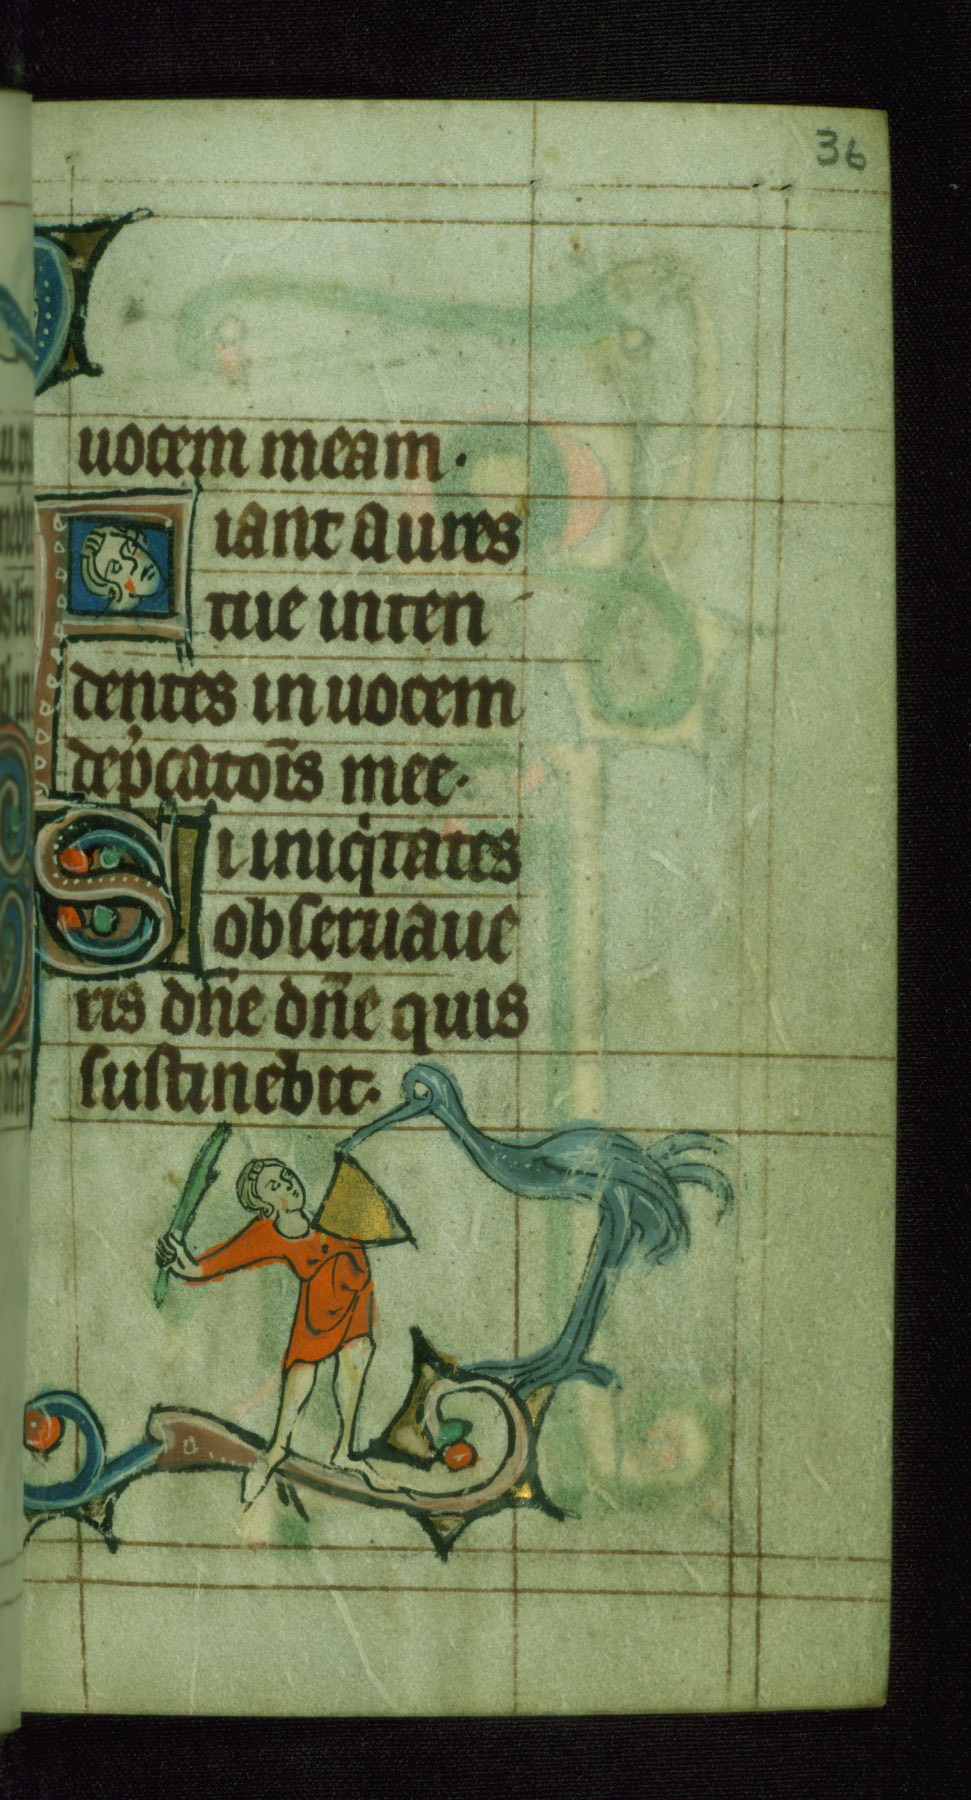 36
uocem meam.
Fiant aures
tue inten
dentes in uocem
dep̄catōis mee.
Si iniqͥtates
obseruaue
ris dn̄e dn̄e quis
sustinebit.